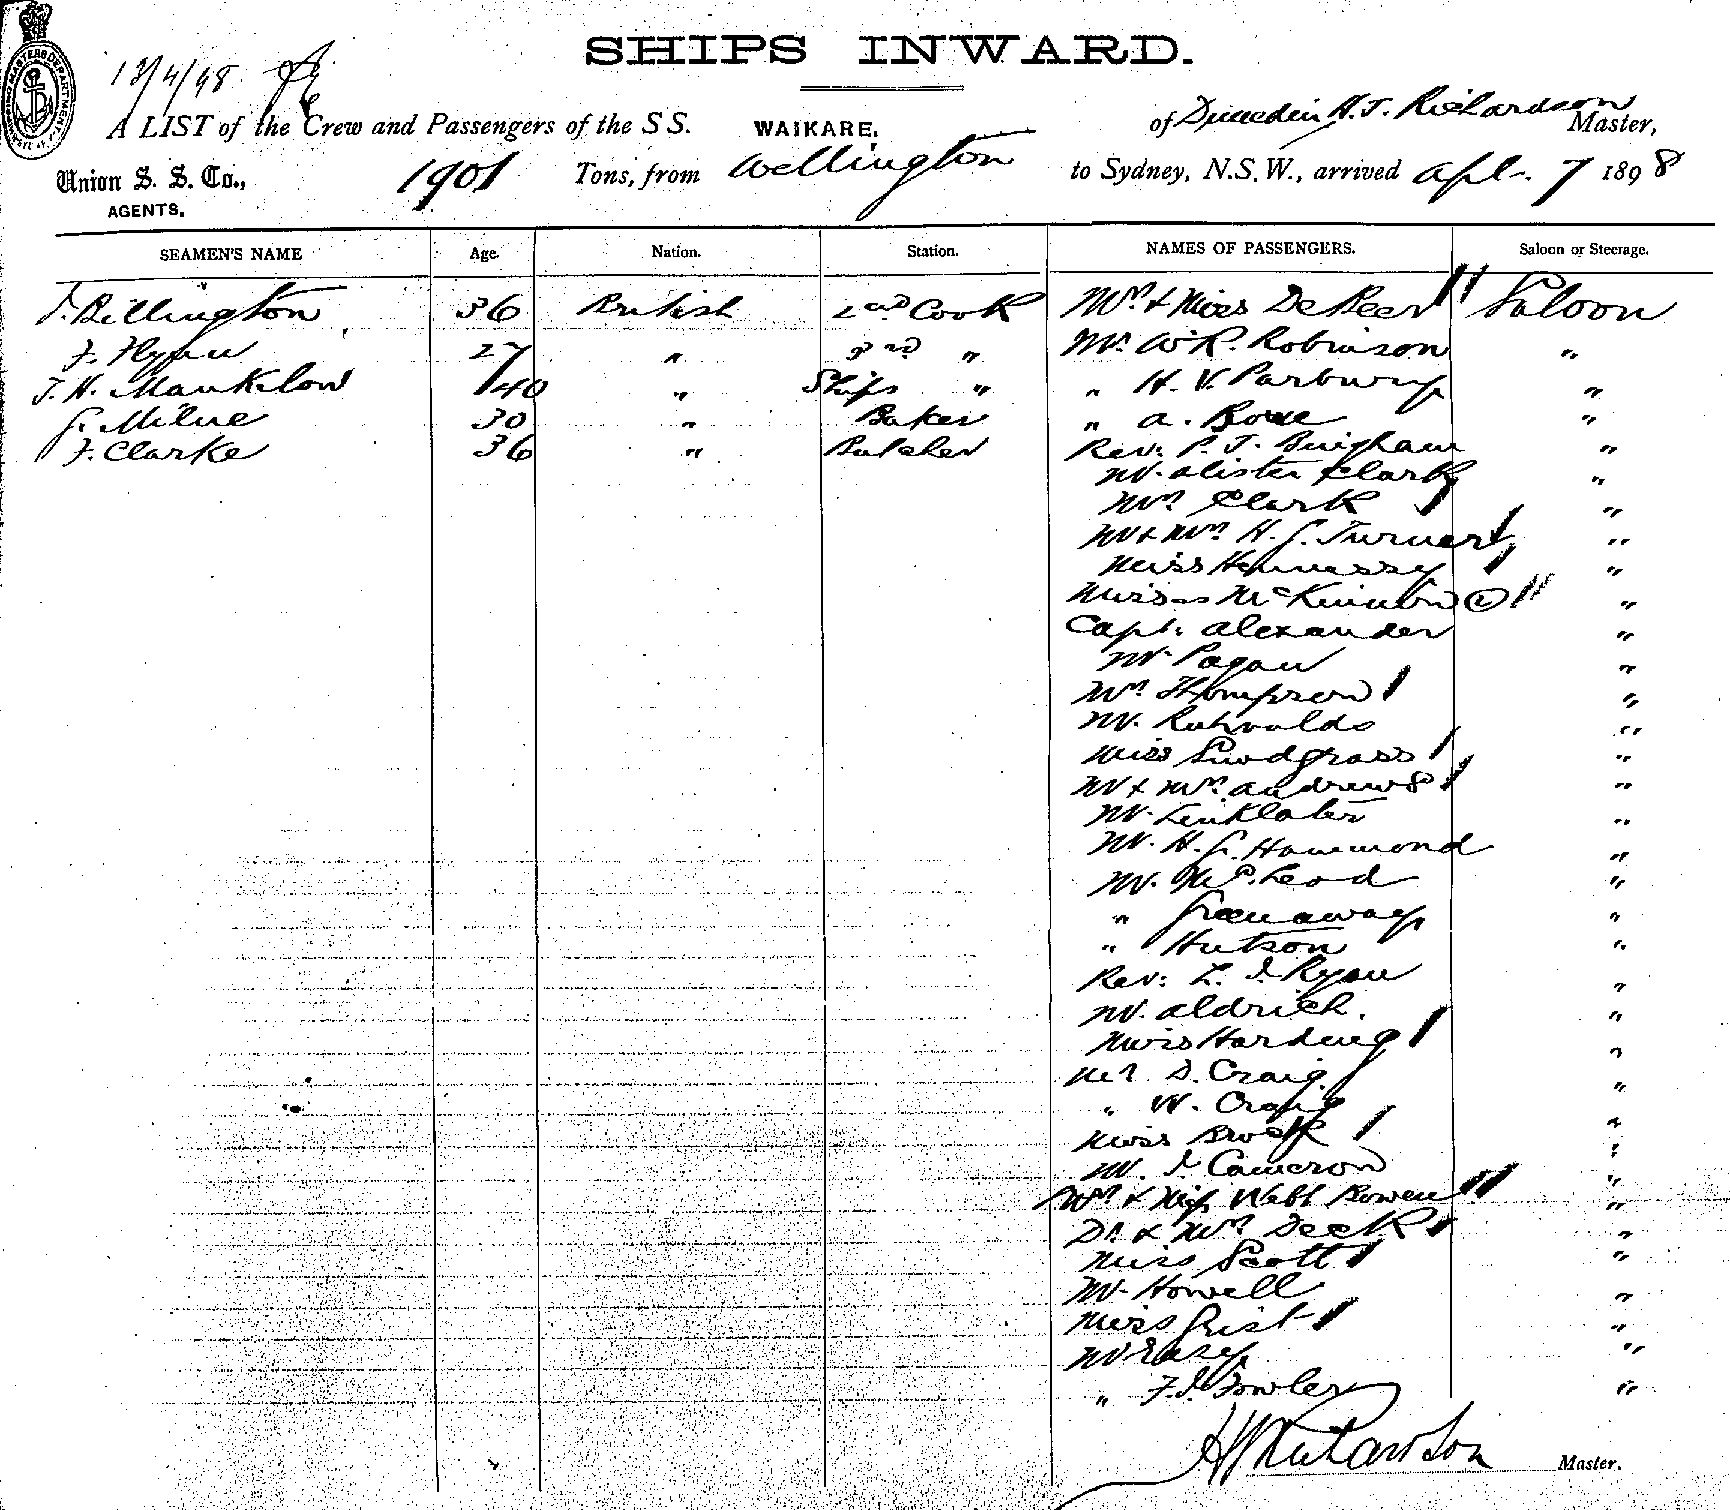 SHIPS INWARD.
13/4/98
A LIST of the Crew and Passengers of the S S. WAIKARE, of Dunedin H. J. Richardson Master,
Union S. S. Co., AGENTS. 1901 Tons, from Wellington to Sydney, N.S.W., arrived Apl. 7 1898
SEAMEN'S NAME Age. Nation. Station. NAMES OF PASSENGERS. Saloon or Steerage.
T. Billington 36 British 2nd Cook Mrs & Miss De Beer Saloon
F. Flynn 27 " 3rd " Mr. W R. Robinson "
T. H. Manklow 40 " Ships " " H. V. Parbury "
G. Milne 30 " Baker " A. "
F. Clarke 36 " Butcher Rev: P. J. Bingham "
Mr. Alister Clark "
Mrs Clark "
Mr & Mrs H. G. Turner "
Miss Hennessy "
Misses McKinnon (2) "
Capt. Alexander "
Mr Pagan "
Mrs Thompson "
Mr. "
Miss Snodgrass "
Mr & Mrs Andrews "
Mr. Linklater "
Mr. H. G. Hammond "
Mr. McLeod "
" Greenaway "
" Hutson "
Rev: L. J. Ryan "
Mr. Aldrich. "
Miss Harding "
Mr D. Craig "
" W. Craig "
Miss "
Mr. J. Cameron "
Mrs & Miss Webb Bowen "
Dr. & Mrs Deck "
Miss Scott "
Mr. Howell "
Miss Grist "
Mr "
" F. J. Fowler "
H J Richardson Master.